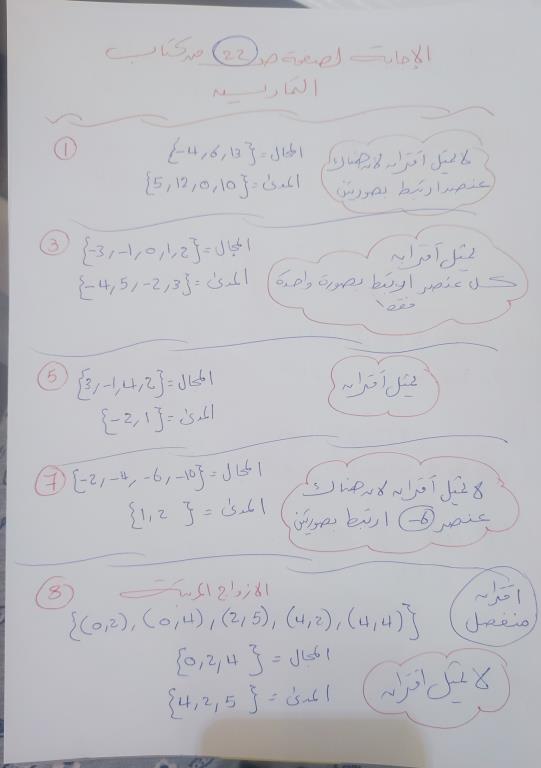 الإجابة لصفحة ص 22 من كتاب
التمارين
1 المجال = {-4, 6, 13}
المدى = {5, 12, 0, 10}
لا يمثل اقتران لانه هناك
عنصر ارتبط بصورتين
3 المجال = {-3, -1, 0, 1, 2}
المدى = {-4, 5, -2, 3}
يمثل اقتران
كل عنصر ارتبط بصورة واحدة
فقط
5 المجال = {3, -1, 4, 2}
المدى = {-2, 1}
يمثل اقتران
7 المجال = {-2, -4, -6, -10}
المدى = {1, 2}
لا يمثل اقتران لانه هناك
عنصر -6 ارتبط بصورتين
8 الازواج المرتبة
{(0,2), (0,4), (2,5), (4,2), (4,4)}
اقتران
منفصل
المجال = {0, 2, 4}
المدى = {4, 2, 5}
لا يمثل اقتران